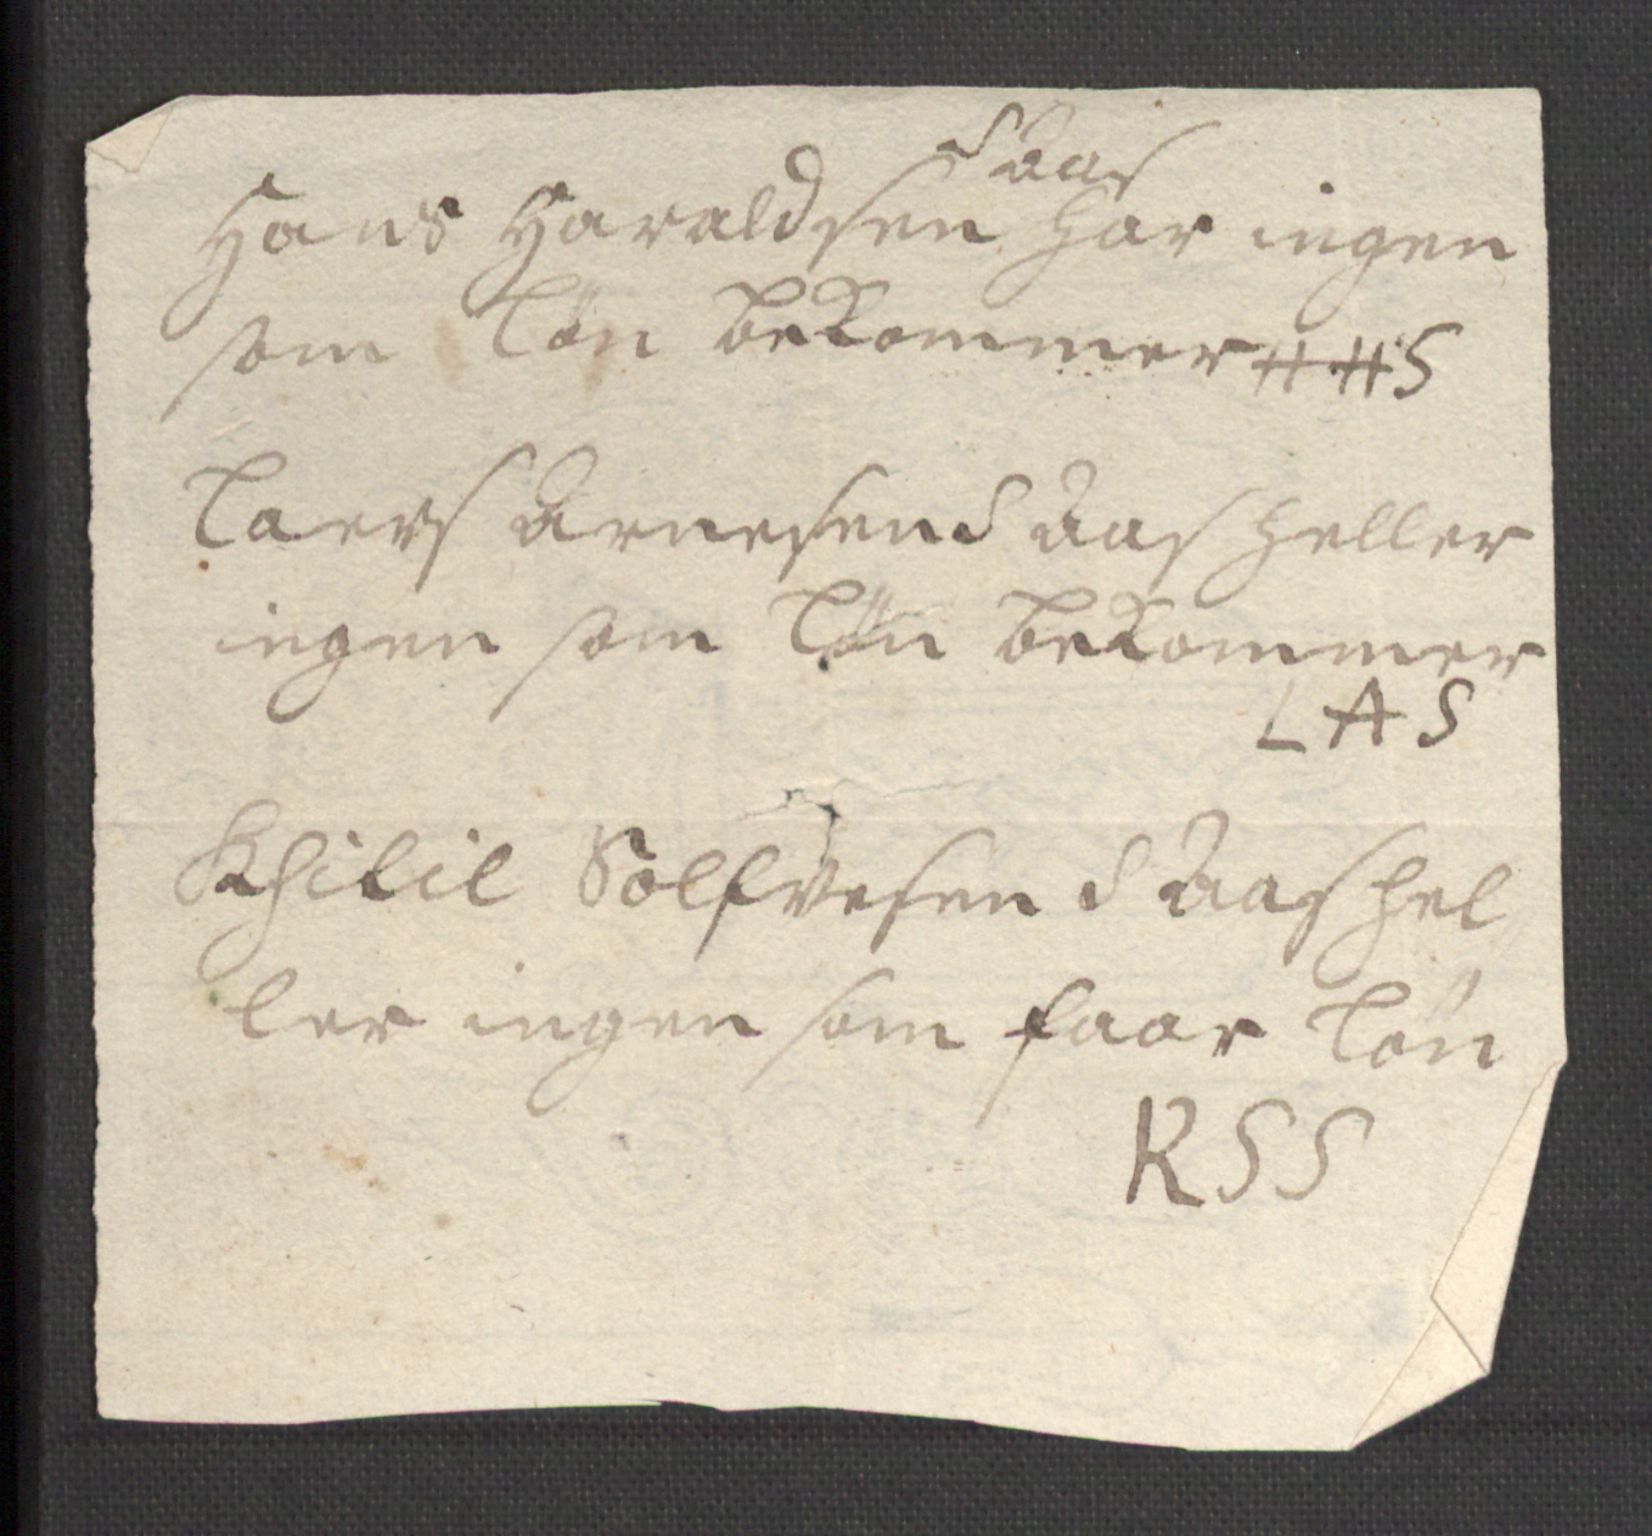 Saas
Hans Haraldsen har ingen
som Lön bekommer HHS
Laers Arnesen Saas heller
ingen som Lön bekommer
LAS
Khitil Solfvesen Saas hel
ler ingen som faar Lön
KSS